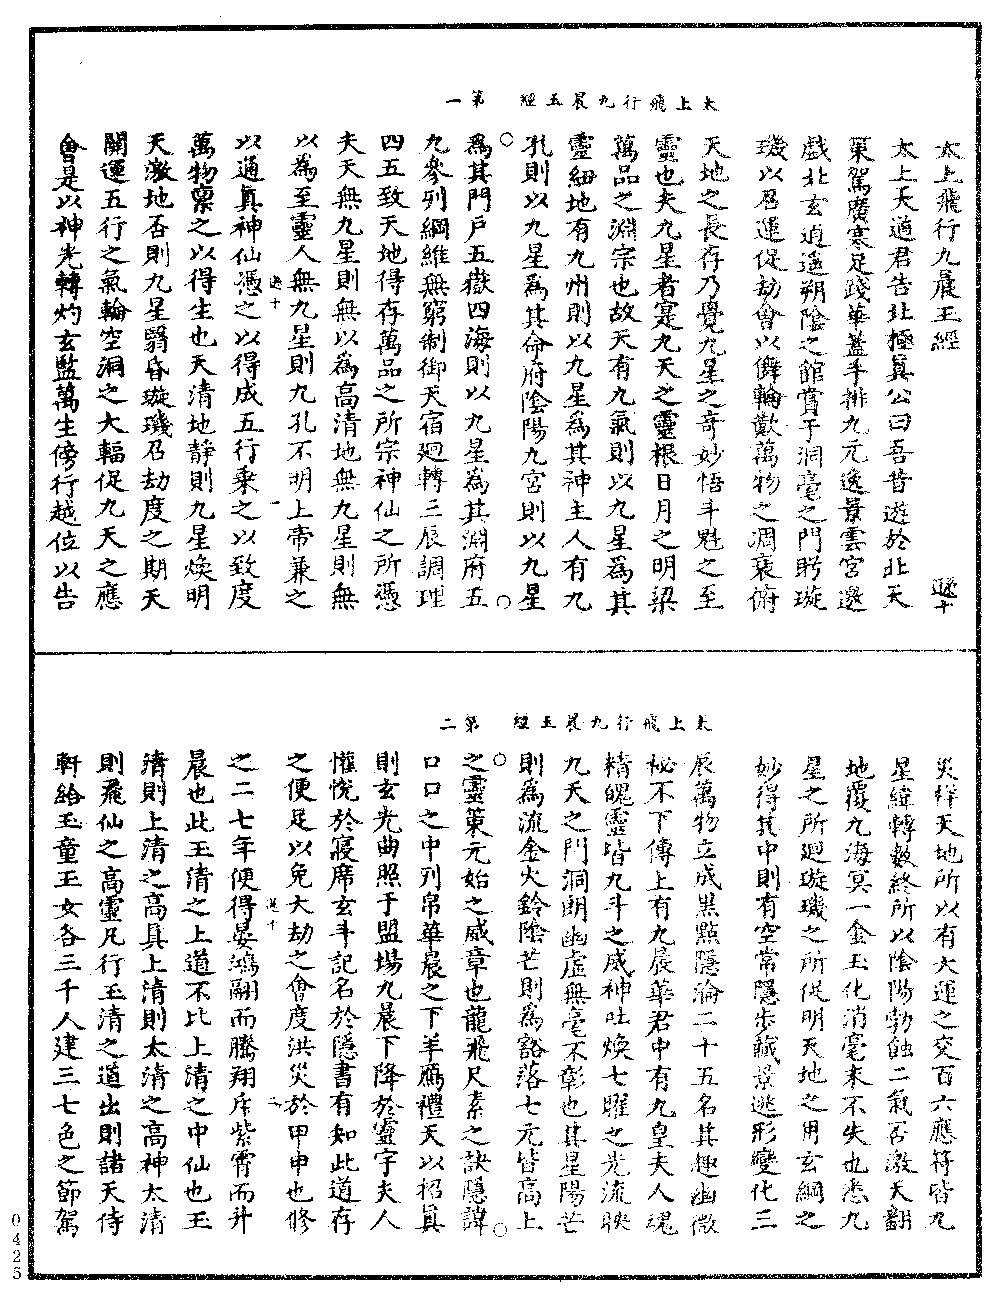 太上飛行九晨玉經　第一
太上飛行九晨玉經　遜十
太上大道君告北極真公曰吾昔遊於北天
策駕廣寒足踐華蓋手排九元逸景雲宮邀
戲北玄逍遙朔陰之館賞于洞毫之門眄璇
璣以召運促劫會以舞輪歎萬物之凋衰俯
天地之長存乃覺九星之奇妙悟斗魁之至
靈也夫九星者寔九天之靈根日月之明梁
萬品之淵宗也故天有九氣則以九星為其
靈紐地有九州則以九星為其神主人有九
孔則以九星為其命府陰陽九宮則以九星
為其門戶五嶽四海則以九星為其淵府五
九參列綱維無窮制御天宿廻轉三辰調理
四五致天地得存萬品之所宗神仙之所憑
夫天無九星則無以為高清地無九星則無
以為至靈人無九星則九孔不明上帝兼之
遜十　一
以通真神仙憑之以得成五行乘之以致度
萬物稟之以得生也天清地靜則九星煥明
天激地否則九星翳昏璇璣召劫度之期天
關運五行之氣輪空洞之大輻促九天之應
會是以神光轉灼玄監萬生傍行越位以告
太上飛行九晨玉經　第二
災祥天地所以有大運之交百六應符皆九
星緯轉數終所以陰陽勃蝕二氣否激天翻
地覆九海冥一金玉化消毫末不失也悉九
星之所廻璇璣之所促明天地之用玄綱之
妙得其中則有空常隱步藏景逃形變化三
辰萬物立成黑點隱淪二十五名其趣幽微
祕不下傳上有九晨華君中有九皇夫人魂
精魄靈皆九斗之威神吐煥七曜之光流映
九天之門洞朗幽虛無毫不彰也其星陽芒
則為流金火鈴陰芒則為豁落七元皆高上
之靈策元始之威章也龍飛尺素之訣隱諱
口口之中列帛華晨之下羊鴈禮天以招真
則玄光曲照于盟場九晨下降於靈宇夫人
懽悅於寢席玄斗記名於隱書有知此道存
之便足以免大劫之會度洪災於甲申也修
遜十　二
之二七年便得晏鴻翮而騰翔斥紫霄而升
晨也此玉清之上道不比上清之中仙也玉
清則上清之高真上清則太清之高神太清
則飛仙之高靈凡行玉清之道出則諸天侍
軒給玉童玉女各三千人建三七色之節駕
0425